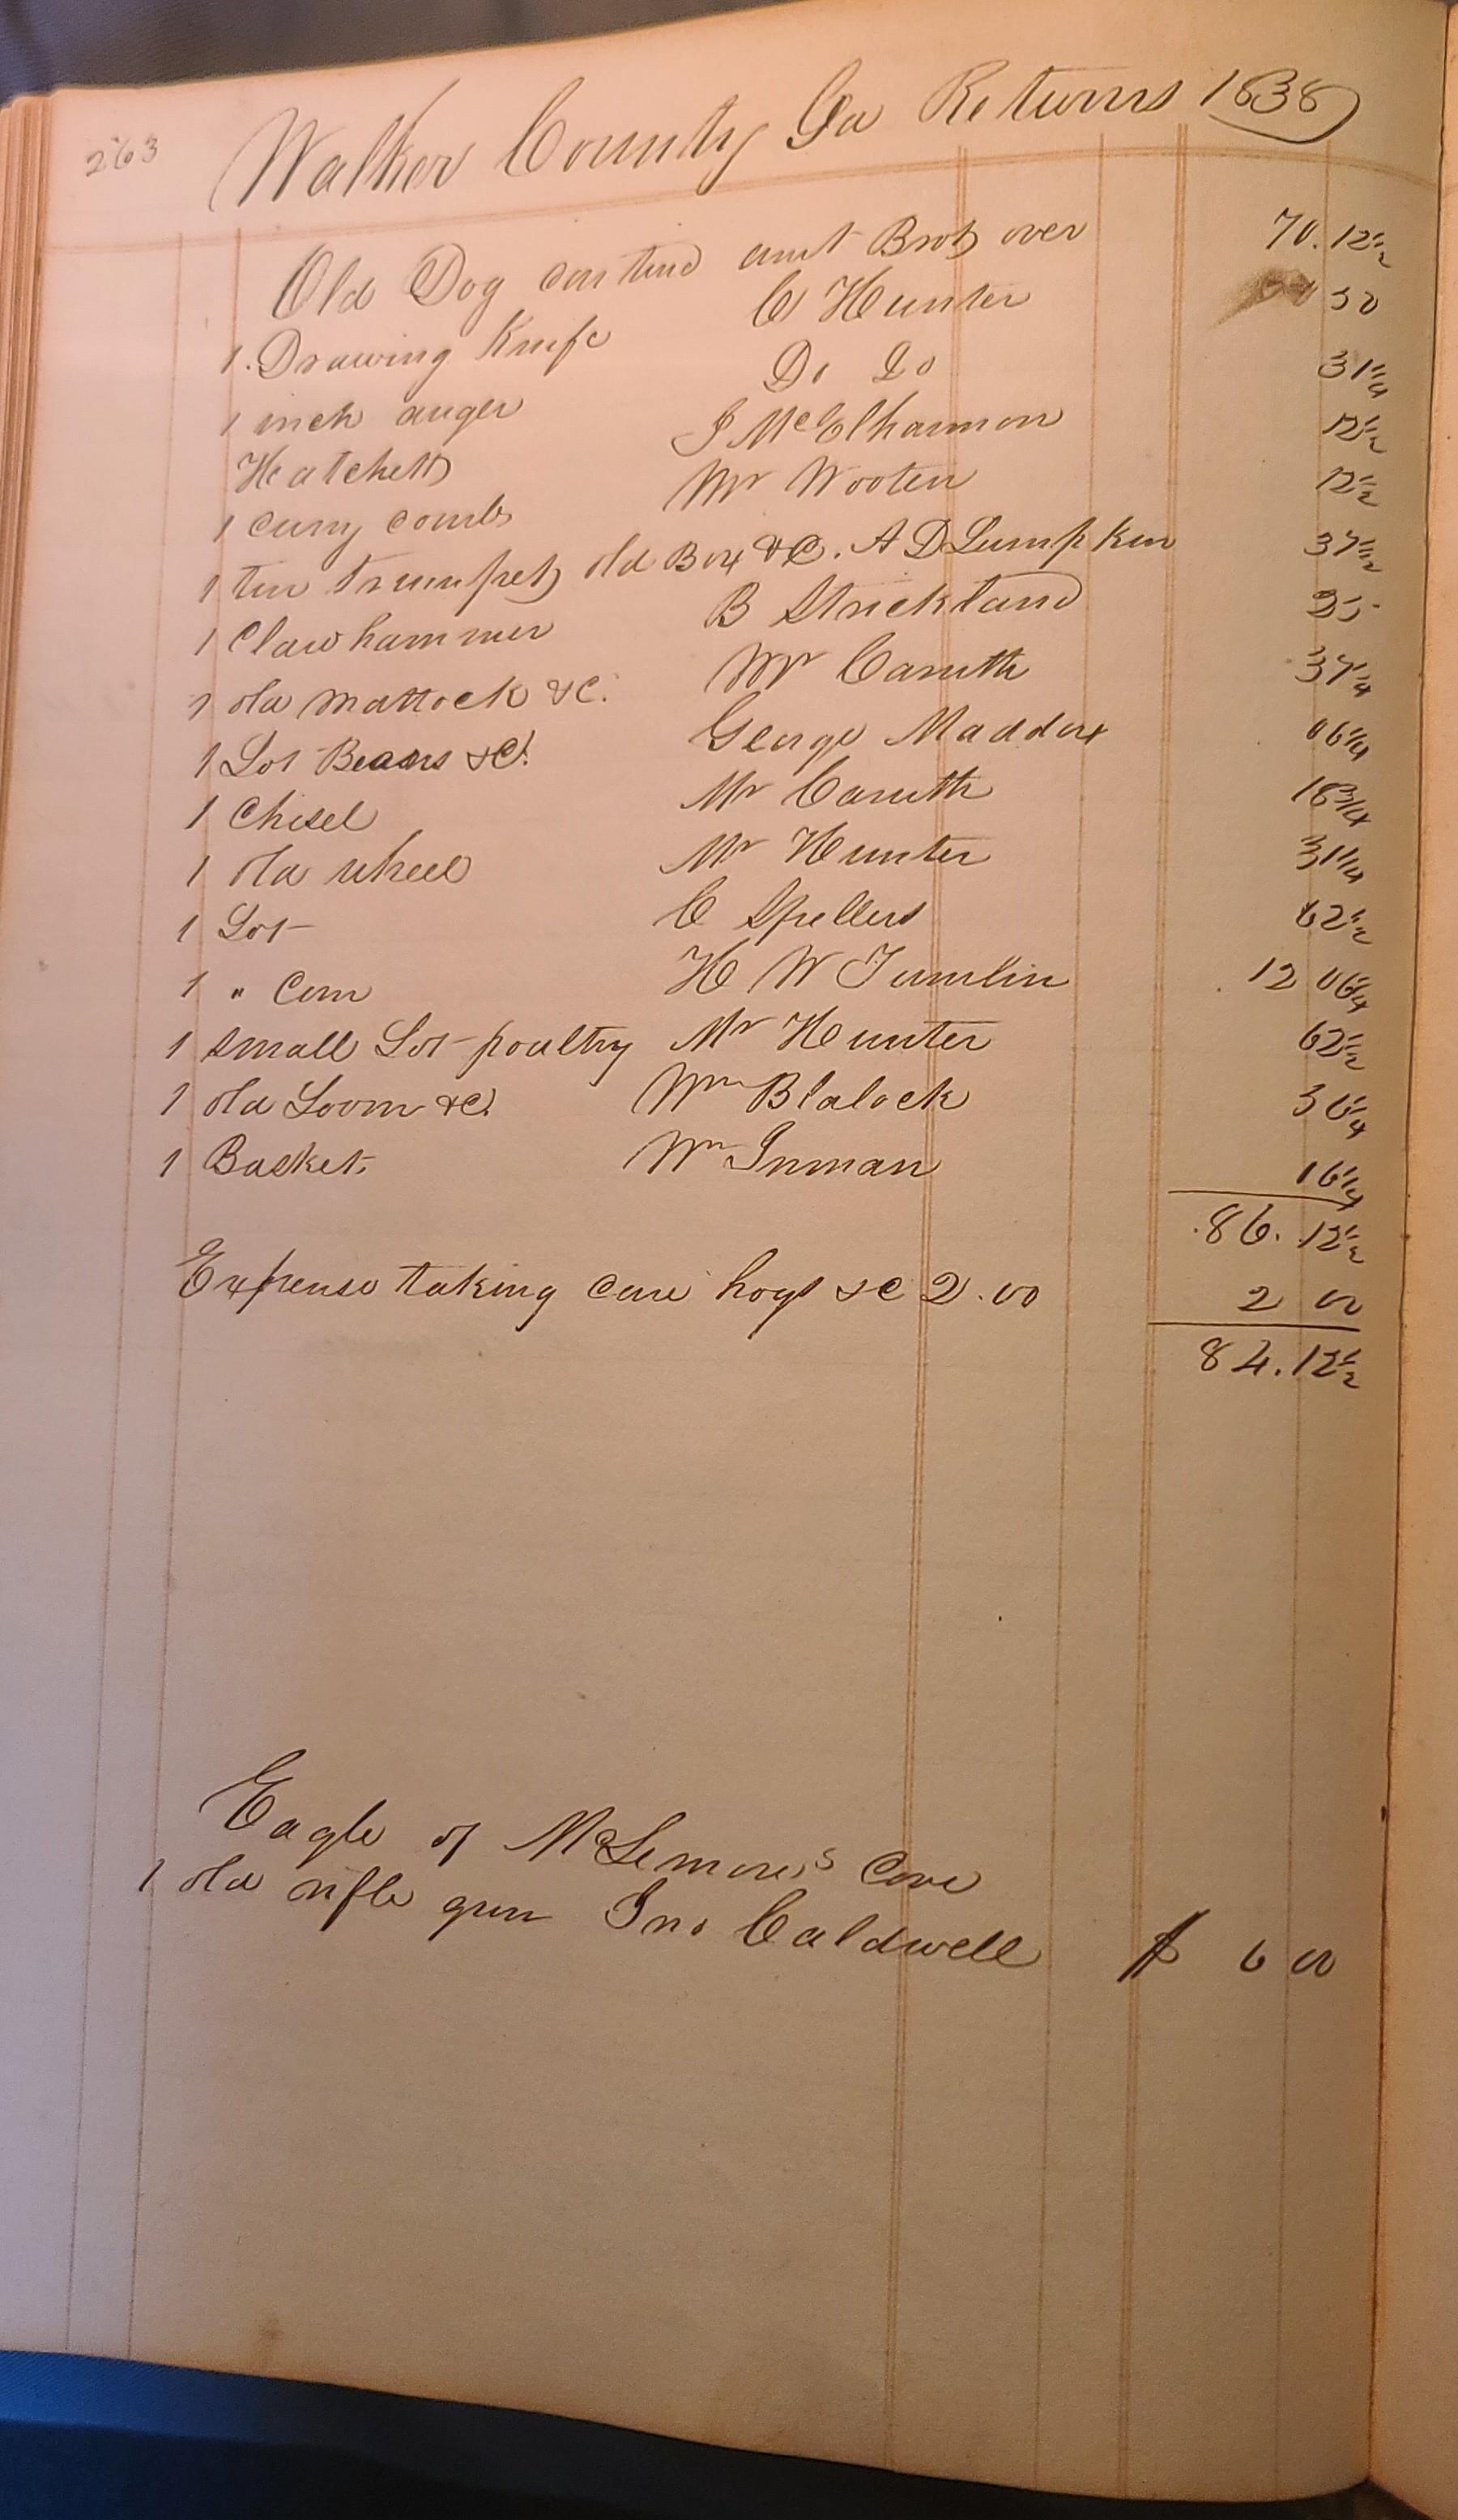 263
Walker County Ga Returns 1838
Old Dog contind amt Brot over 70.12 1/2
1. Drawing Knife C Hunter 50
1 inch auger Do Do 31 1/4
Hatchett J McElhannon 12 1/2
1 curry comb Mr Wooten 12 1/2
1 tin trumpet old Box &C. A D Lumpkin 37 1/2
1 Claw hammer B Strickland 25
1 old mattock &C. Mr Caruth 37 1/4
1 Lot Beans &C. George Maddox 06 1/4
1 Chisel Mr Caruth 18 3/4
1 old wheel Mr Hunter 31 1/4
1 Lot C Spellers 62 1/2
1 " Corn H W Tumlin 12 06 1/4
1 small Lot poultry Mr Hunter 62 1/2
1 old Loom &C. Wm Blalock 36 1/4
1 Basket Wm Inman 16 1/4
86. 12 1/2
Expense taking care hogs &C 2.00 2 00
84.12 1/2
Eagle of McLemore's Cove
1 old rifle gun Jno Caldwell $ 6 00